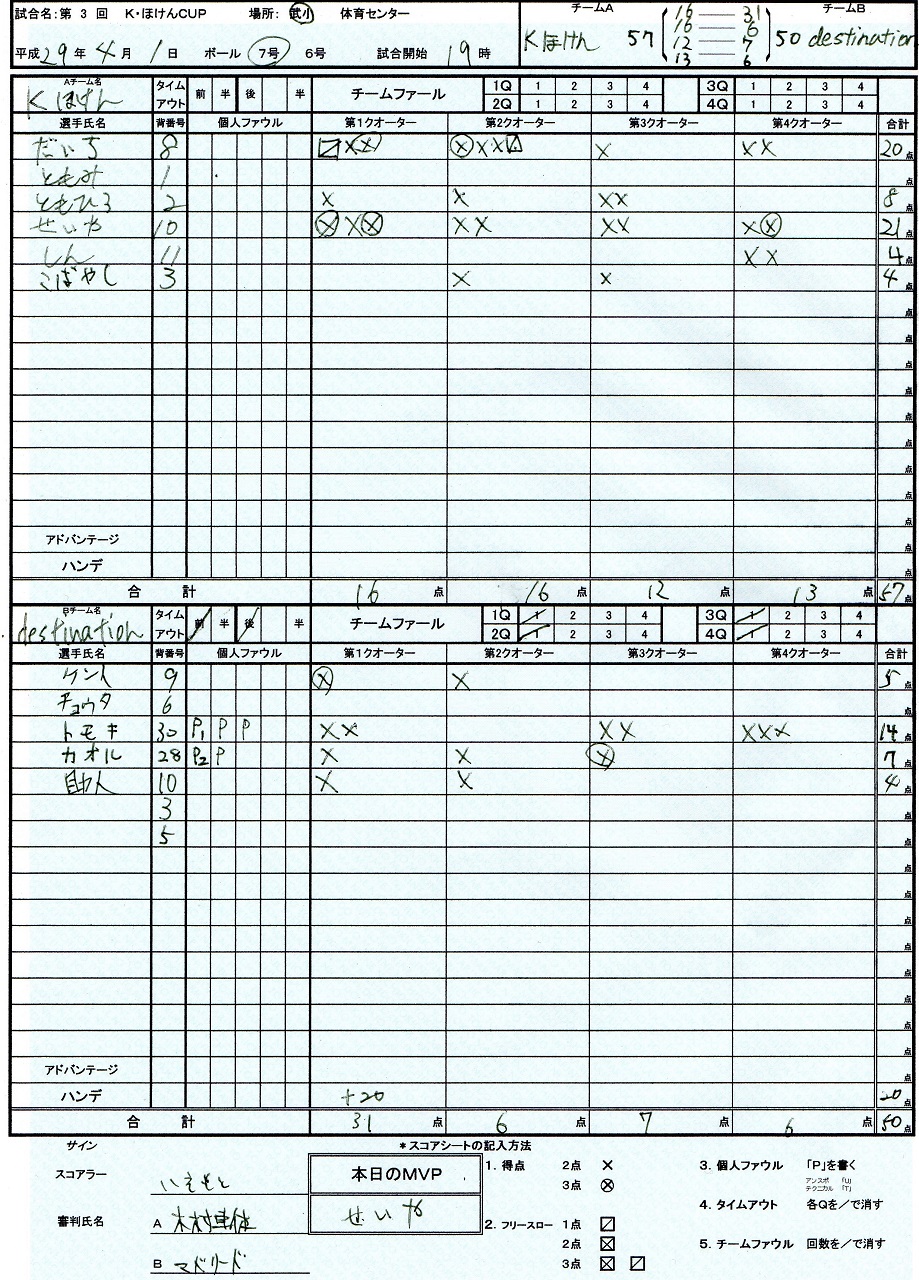 試合名:第 3 回 K・ほけんCUP 場所: 武小 体育センター
平成29年 4月 1日 ボール 7号 6号 試合開始 19時
チームA チームB
Kほけん 57 50 destination
16 — 31
16 — 6
12 — 7
13 — 6
Aチーム名 Kほけん タイムアウト 前 半 後 半 チームファール 1Q 1 2 3 4 3Q 1 2 3 4
2Q 1 2 3 4 4Q 1 2 3 4
選手氏名 背番号 個人ファウル 第1クオーター 第2クオーター 第3クオーター 第4クオーター 合計
だいち 8 〼×⊗ ⊗××〼 × ×× 20点
ともみ 1 点
ともひろ 2 × × ×× 8点
せいや 10 ⊗×⊗ ×× ×× ×⊗ 21点
しん 11 ×× 4点
こばやし 3 × × 4点
アドバンテージ 点
ハンデ 点
合 計 16点 16点 12点 13点 57点
Bチーム名 destination タイムアウト 前 半 後 半 チームファール 1Q 1 2 3 4 3Q 1 2 3 4
2Q 1 2 3 4 4Q 1 2 3 4
選手氏名 背番号 個人ファウル 第1クオーター 第2クオーター 第3クオーター 第4クオーター 合計
ケント 9 ⊗ × 5点
チョウタ 6 点
トモキ 30 P1 P P ×× ×× ××× 14点
カオル 28 P2 P × × ⊗ 7点
助人 10 × × 4点
3 点
5 点
アドバンテージ 点
ハンデ +20 20点
合 計 31点 6点 7点 6点 50点
サイン *スコアシートの記入方法
スコアラー いえもと
審判氏名 A 木村
B マドリード
本日のMVP
せいや
1. 得点 2点 ×
3点 ⊗
2. フリースロー 1点 〼
2点 ☒
3点 ☒ 〼
3. 個人ファウル 「P」を書く
アンスポ 「U」
テクニカル 「T」
4. タイムアウト 各Qを/で消す
5. チームファウル 回数を/で消す